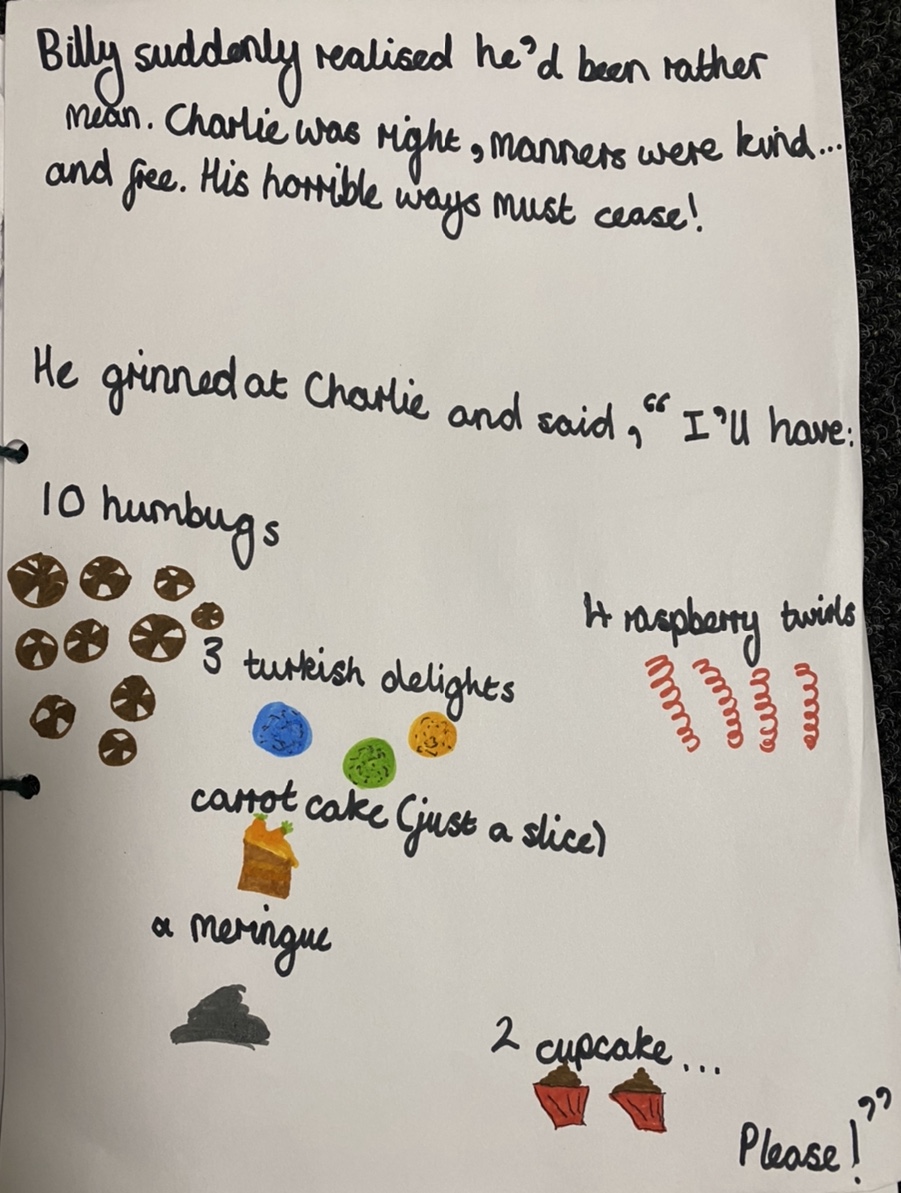 Billy suddenly realised he'd been rather
mean. Charlie was right, manners were kind...
and free. His horrible ways must cease!
He grinned at Charlie and said, “I'll have:
10 humbugs
4 raspberry twirls
3 turkish delights
carrot cake (just a slice)
a meringue
2 cupcake...
Please!”